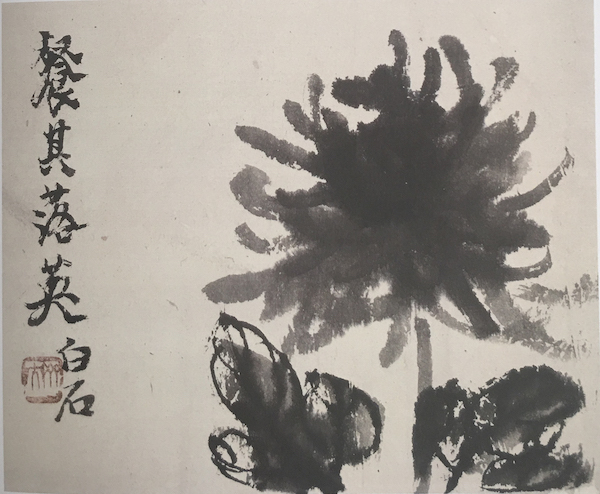 餐其落英
白石